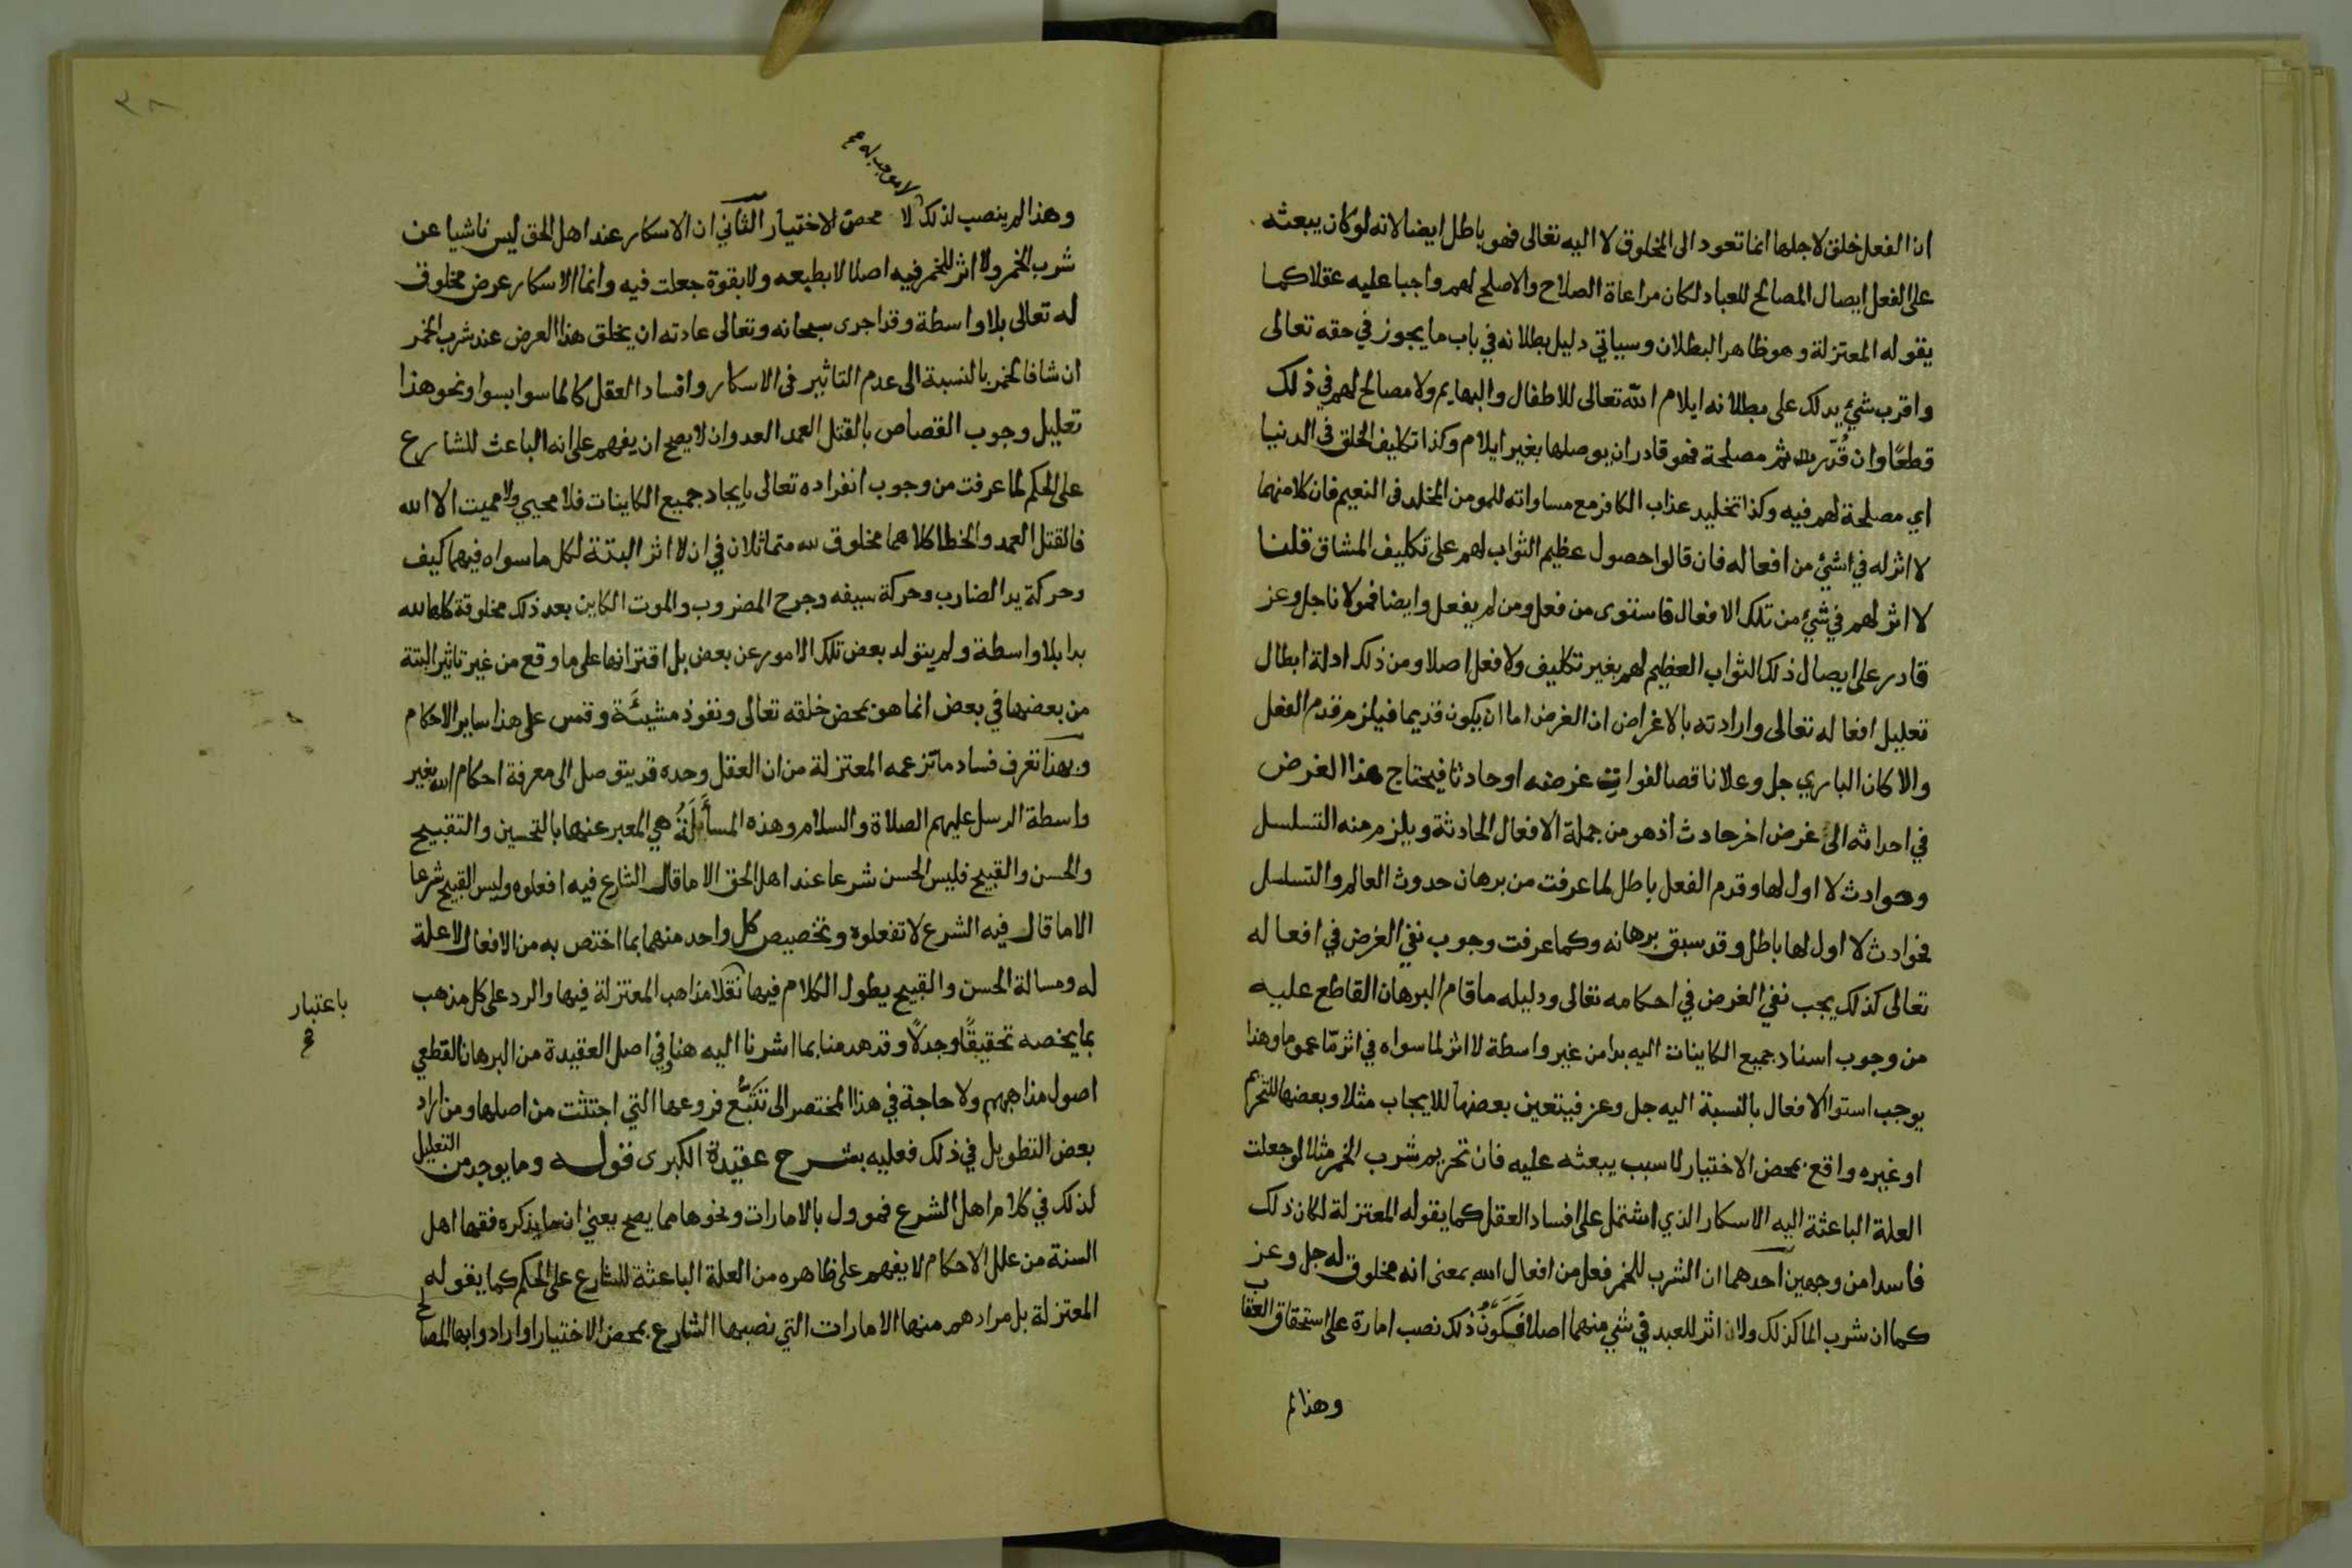 ان الفعل خلق لاجلها انما تعود الى المخلوق لا اليه تعالى فهو باطل ايضا لانه لو كان يبعثه
على الفعل ايصال المصالح للعباد لكان مراعاة الصلاح والاصلح لهم واجبا عليه عقلا كما
يقوله المعتزلة وهو ظاهر البطلان وسياتي دليل بطلانه في باب ما يجوز في حقه تعالى
واقرب شيء يدلك على بطلانه ايلام الله تعالى للاطفال والبهايم ولا مصالح لهم في ذلك
قطعًا وان قُدّرت ثم مصلحة فهو قادر ان يوصلها بغير ايلام وكذا تكليف الخلق في الدنيا
اي مصلحة لهم فيه وكذا تخليد عذاب الكافر مع مساواته للمومن المخلد في النعيم فان كلا منهما
لا اثر له في شيء من افعاله فان قالوا حصول عظيم الثواب لهم على تكليف المشاق قلنا
لا اثر لهم في شيء من تلك الافعال فاستوى من فعل ومن لم يفعل وايضا فمولانا جل وعز
قادر على ايصال ذلك الثواب العظيم لهم بغير تكليف ولا فعل اصلا ومن ذلك ادلة ابطال
تعليل افعاله تعالى وارادته بالاغراض ان الغرض اما ان يكون قديما فيلزم قدم الفعل
والا كان الباري جل وعلا ناقصا لفوات غرضه او حادثا فيحتاج هذا الغرض
في احداثه الى غرض اخر حادث اذ هو من جملة الافعال الحادثة ويلزم منه التسلسل
وحوادث لا اول لها وقدم الفعل باطل لما عرفت من برهان حدوث العالم والتسلسل
بحوادث لا اول لها باطل وقد سبق برهانه وكما عرفت وجوب نفي الغرض في افعاله
تعالى كذلك يجب نفي الغرض في احكامه تعالى ودليله ما قام البرهان القاطع عليه
من وجوب اسناد جميع الكاينات اليه بدا من غير واسطة لا اثر لما سواه في اثر مّا عموما وهذا
يوجب استوا الافعال بالنسبة اليه جل وعز فيتعين بعضها للايجاب مثلا وبعضها للتحريم
او غيره واقع بمحض الاختيار لا سبب يبعثه عليه فان تحريم شرب الخمر مثلا لو جعلت
العلة الباعثة اليه الاسكار الذي اشتمل على افساد العقل كما يقوله المعتزلة لكان ذلك
فاسدا من وجهين احدهما ان الشرب للخمر فعل من افعال الله بمعنى انه مخلوق له جل وعز
كما ان شرب الما كذلك ولا اثر للعبد في شي منهما اصلا فَكَوْنُ ذلك نصب امارة على استحقاق العقاب
وهذا لم
٣٨
لا موجب له صح
وهذا لم ينصب لذلك لا محض الاختيار الثاني ان الاسكار عند اهل الحق ليس ناشيا عن
شرب الخمر ولا اثر للخمر فيه اصلا لا بطبعه ولا بقوة جعلت فيه وانما الاسكار عرض مخلوق
له تعالى بلا واسطة وقد اجرى سبحانه وتعالى عادته ان يخلق هذا العرض عند شرب الخمر
ان شا فالخمر بالنسبة الى عدم التاثير في الاسكار وافساد العقل كالما سوا بسوا ونحو هذا
تعليل وجوب القصاص بالقتل العمد العدوان لا يصح ان يفهم على انه الباعث للشارع
على الحكم لما عرفت من وجوب انفراده تعالى بايجاد جميع الكاينات فلا محيي ولا مميت الا الله
فالقتل العمد والخطا كلاهما مخلوق لله متماثلان في ان لا اثر البتة لكل ما سواه فيهما كيف
وحركة يد الضارب وحركة سيفه وجرح المضروب والموت الكاين بعد ذلك مخلوقة كلها لله
بدا بلا واسطة ولم يتولد بعض تلك الامور عن بعض بل اقترانها على ما وقع من غير تاثير البتة
من بعضها في بعض انما هو بمحض خلقه تعالى ونفوذ مشيئة وقس على هذا ساير الاحكام
وبهذا تعرف فساد ما تزعمه المعتزلة من ان العقل وحده قد يتوصل الى معرفة احكام الله بغير
واسطة الرسل عليهم الصلاة والسلام وهذه المسأَلَةُ هي المعبر عنها بالتحسين والتقبيح
والحسن والقبيح فليس الحسن شرعا عند اهل الحق الا ما قال الشارع فيه افعلوه وليس القبيح شرعا
الا ما قال فيه الشرع لا تفعلوه وتخصيص كل واحد منهما بما اختص به من الافعال لا علة
له ومسالة الحسن والقبيح يطول الكلام فيها نقلا مذاهب المعتزلة فيها والرد على كل مذهب
باعتبار
بما يخصه تحقيقًا وجدلًا وقد هدمنا بما اشرنا اليه هنا وفي اصل العقيدة من البرهان القطعي
اصول مذاهبهم ولا حاجة في هذا المختصر الى تَتَبُّع فروعها التي اجتثت من اصلها ومن اراد
بعض التطويل في ذلك فعليه بشرح عقيدة الكبرى قوله وما يوجد من التعليل
لذلك في كلام اهل الشرع فموول بالامارات ونحوها مما يصح يعني ان ما يذكره فقها اهل
السنة من علل الاحكام لا يفهم على ظاهره من العلة الباعثة للشارع على الحكم كما يقوله
المعتزلة بل مرادهم منها الامارات التي نصبها الشارع بمحض الاختيار او ارادوا بها المصالح